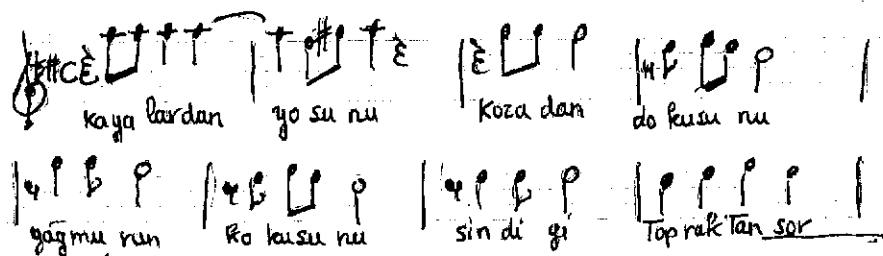 kaya lardan yo su nu koza dan do kusu nu
yağmu run ko kusu nu sin di gi Top rak Tan sor